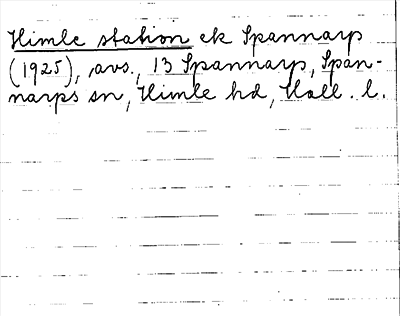 Himle station ek Spannarp
(1925), avs., 13 Spannarp, Span-
narps sn, Himle hd, Hall. l.